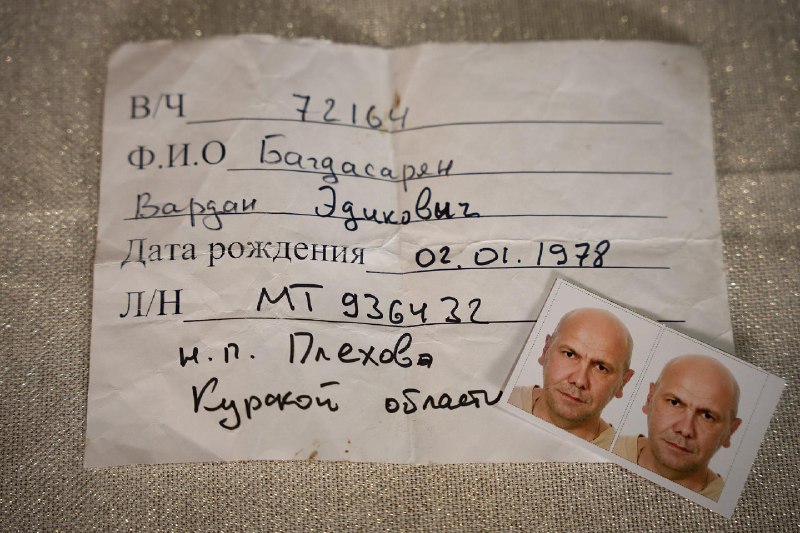 В/Ч 72164
Ф.И.О Багдасарен
Вардан Эдикович
Дата рождения 02.01.1978
Л/Н МТ 936432
н.п. Плехово
Курской области